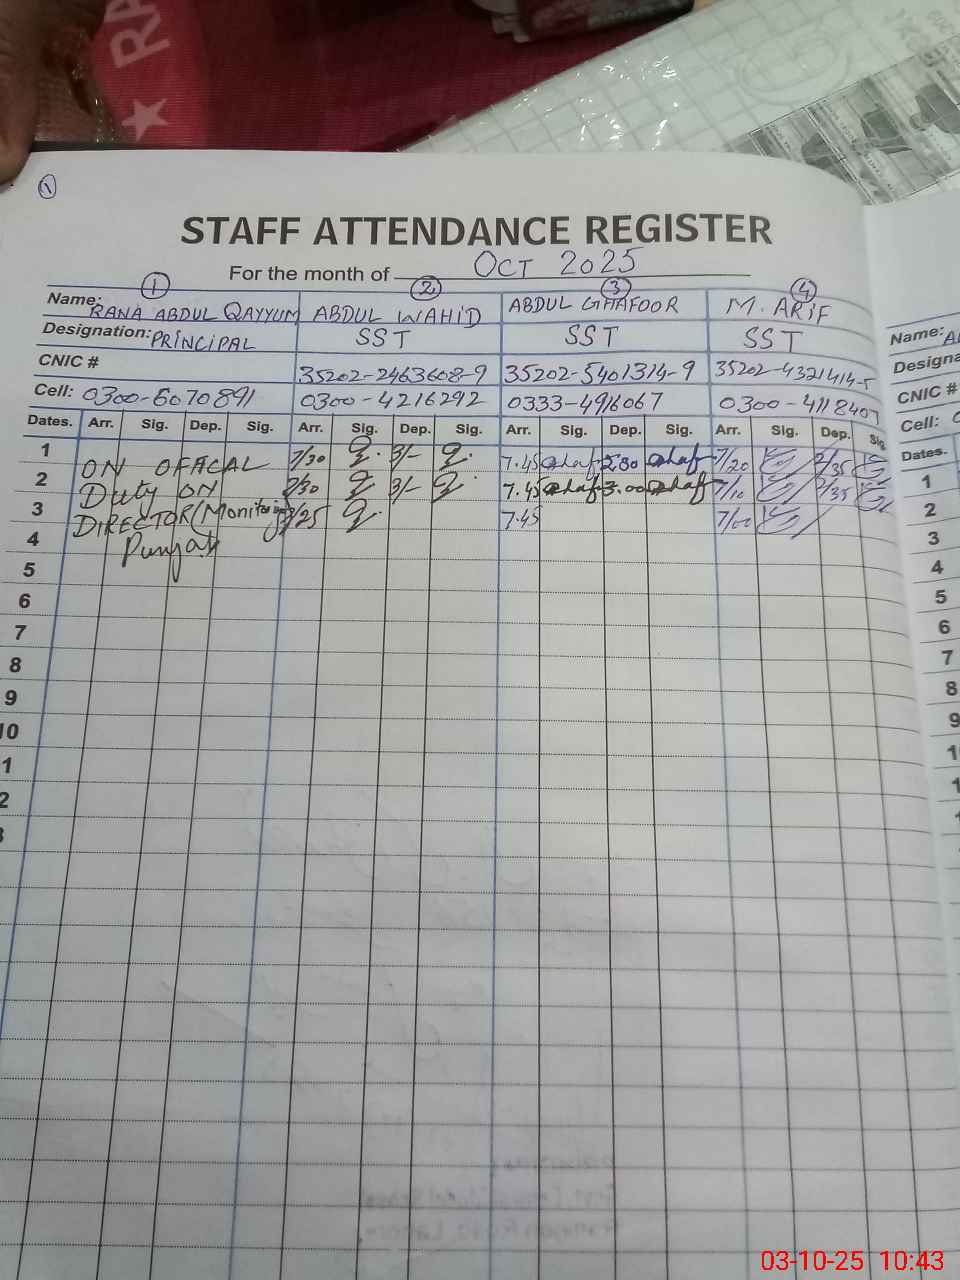 RA
①
STAFF ATTENDANCE REGISTER
For the month of OCT 2025
① ② ③ ④
Name: RANA ABDUL QAYYUM ABDUL WAHID ABDUL GHAFOOR M. ARIF
Designation: PRINCIPAL SST SST SST
CNIC # 35202-2463608-9 35202-5401314-9 35202-4321414-5
Cell: 0300-6070891 0300-4216292 0333-4916067 0300-4118407
Dates. Arr. Sig. Dep. Sig. Arr. Sig. Dep. Sig. Arr. Sig. Dep. Sig. Arr. Sig. Dep. Sig.
1 ON OFFICAL 7/30 3/- 7.45 2.30 7/20 2/35
2 Duty ON 7/30 3/- 7.45 3.00 7/10 2/35
3 DIRECTOR (Monitoring) 7/25 7.45 7/00
4 Punjab
5
6
7
8
9
10
1
2
3
Name:
Designa
CNIC #
Cell:
Dates.
1
2
3
4
5
6
7
8
9
1
03-10-25 10:43